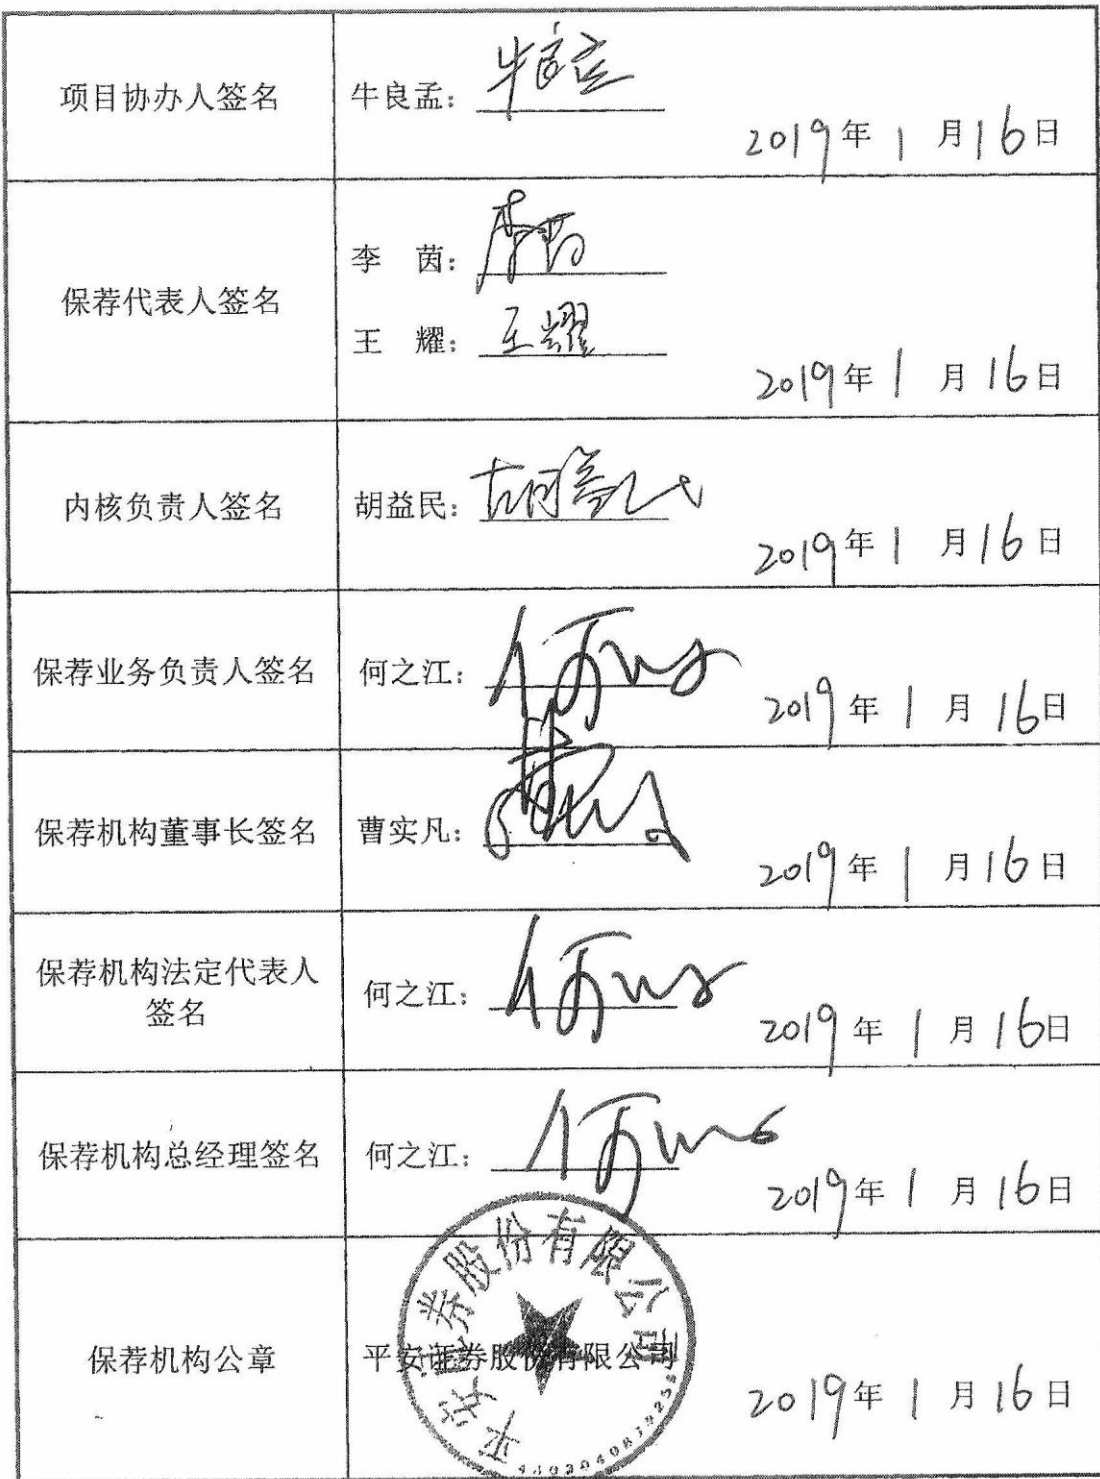 项目协办人签名
牛良孟：牛良孟
2019年 1 月16日
保荐代表人签名
李　茵：李茵
王　耀：王耀
2019年 1 月16日
内核负责人签名
胡益民：胡益民
2019年 1 月16日
保荐业务负责人签名
何之江：何之江
2019年 1 月16日
保荐机构董事长签名
曹实凡：
2019年 1 月16日
保荐机构法定代表人
签名
何之江：何之江
2019年 1 月16日
保荐机构总经理签名
何之江：何之江
2019年 1 月16日
保荐机构公章
平安证券股份有限公司
平安证券股份有限公司
2019年 1 月16日